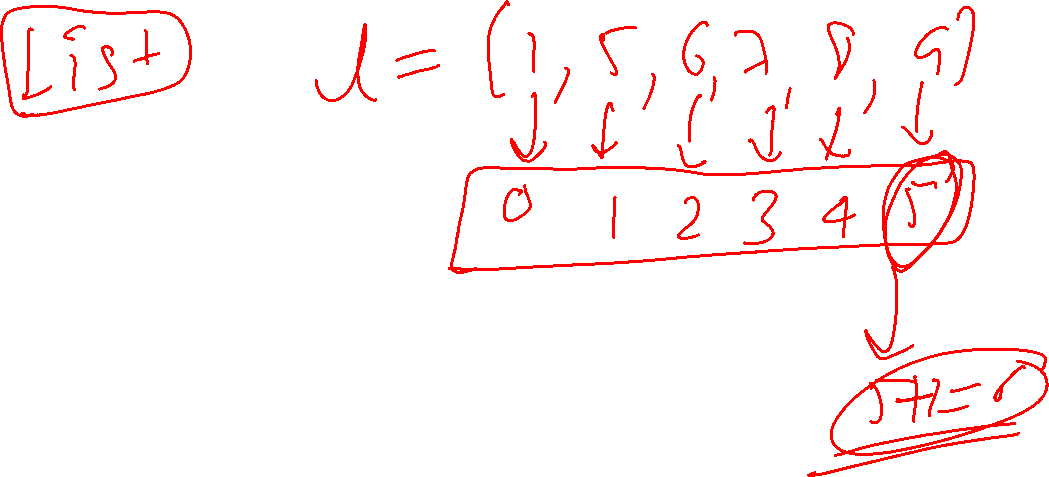 List
l = [1, 5, 6, 7, 8, 9]
0 1 2 3 4 5
5+1=6